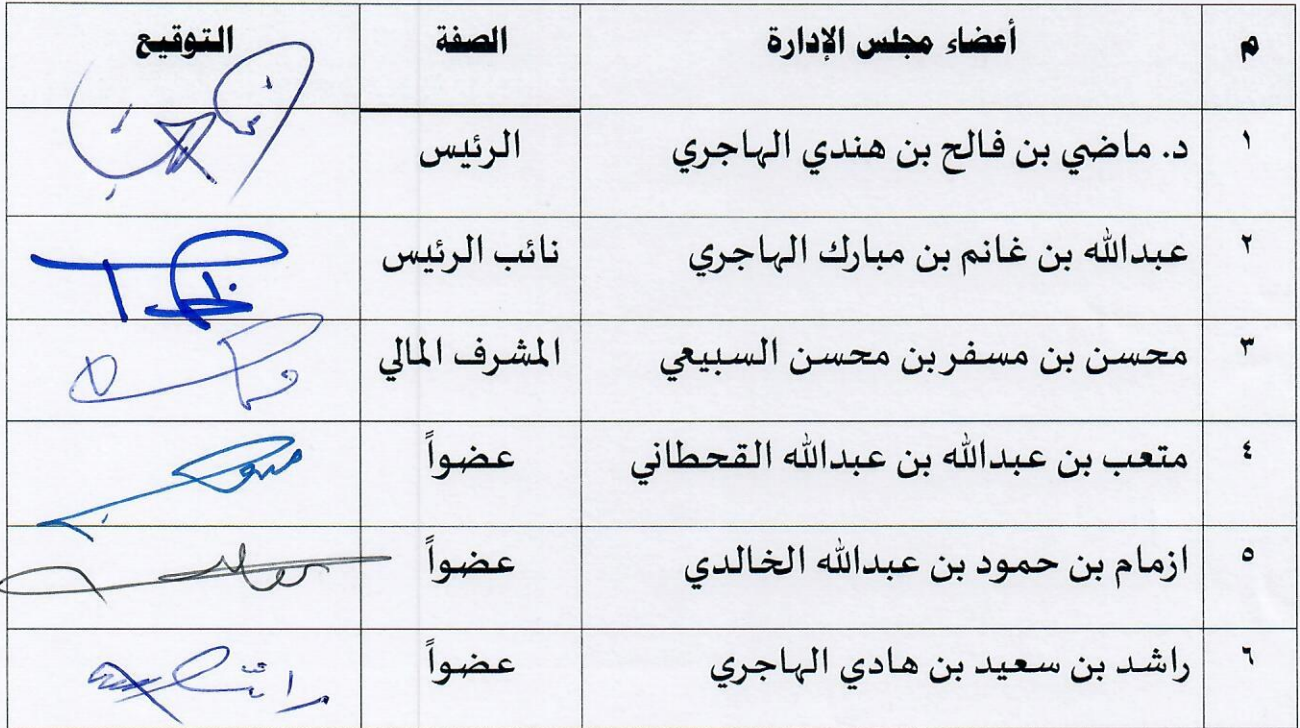 م أعضاء مجلس الإدارة الصفة التوقيع
١ د. ماضي بن فالح بن هندي الهاجري الرئيس
٢ عبدالله بن غانم بن مبارك الهاجري نائب الرئيس
٣ محسن بن مسفر بن محسن السبيعي المشرف المالي
٤ متعب بن عبدالله بن عبدالله القحطاني عضواً
٥ ازمام بن حمود بن عبدالله الخالدي عضواً
٦ راشد بن سعيد بن هادي الهاجري عضواً